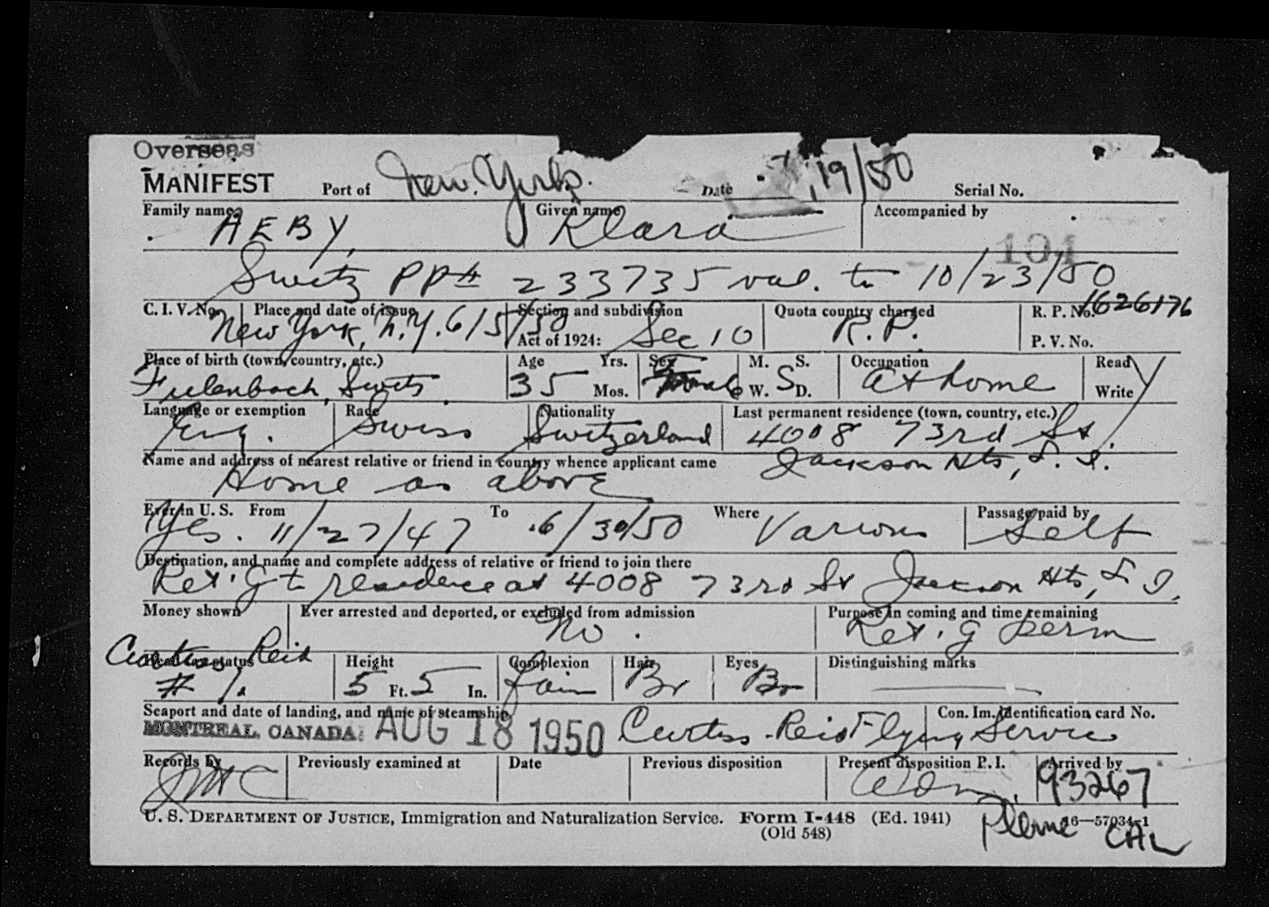 Overseas
MANIFEST Port of New York. Date 19/50 Serial No.
Family name Given name Accompanied by
AEBY, Klara
104
Switz PP# 233735 val. to 10/23/50
C. I. V. No. Place and date of issue Section and subdivision Quota country charged R. P. No. 1626176
New York, N.Y. 6/5/50 Act of 1924: Sec 10 R.P. P. V. No.
Place of birth (town, country, etc.) Age Yrs. Sex M. S. Occupation Read
Fulenbach, Switz. 35 Mos. Female W. S D. at home Write
Language or exemption Race Nationality Last permanent residence (town, country, etc.)
Eng. Swiss Switzerland 4008 73rd St.
Name and address of nearest relative or friend in country whence applicant came Jackson Hts, L. I.
Home as above
Ever in U. S. From To Where Passage paid by
Yes. 11/27/47 6/30/50 Various Self
Destination, and name and complete address of relative or friend to join there
Ret'G to residence at 4008 73rd St Jackson Hts, L. I.
Money shown Ever arrested and deported, or excluded from admission Purpose in coming and time remaining
No. Ret'G perm
Curtiss Reid
Height Complexion Hair Eyes Distinguishing marks
# 1. 5 Ft. 5 In. fair Br Br
Seaport and date of landing, and name of steamship Con. Im. Identification card No.
MONTREAL, CANADA. AUG 18 1950 Curtiss-Reid Flying Service
Records by Previously examined at Date Previous disposition Present disposition P. I. Arrived by
JMC Adm. 93267
U. S. DEPARTMENT OF JUSTICE, Immigration and Naturalization Service. Form I-448 (Ed. 1941) 16—57034-1
(Old 548) CAL